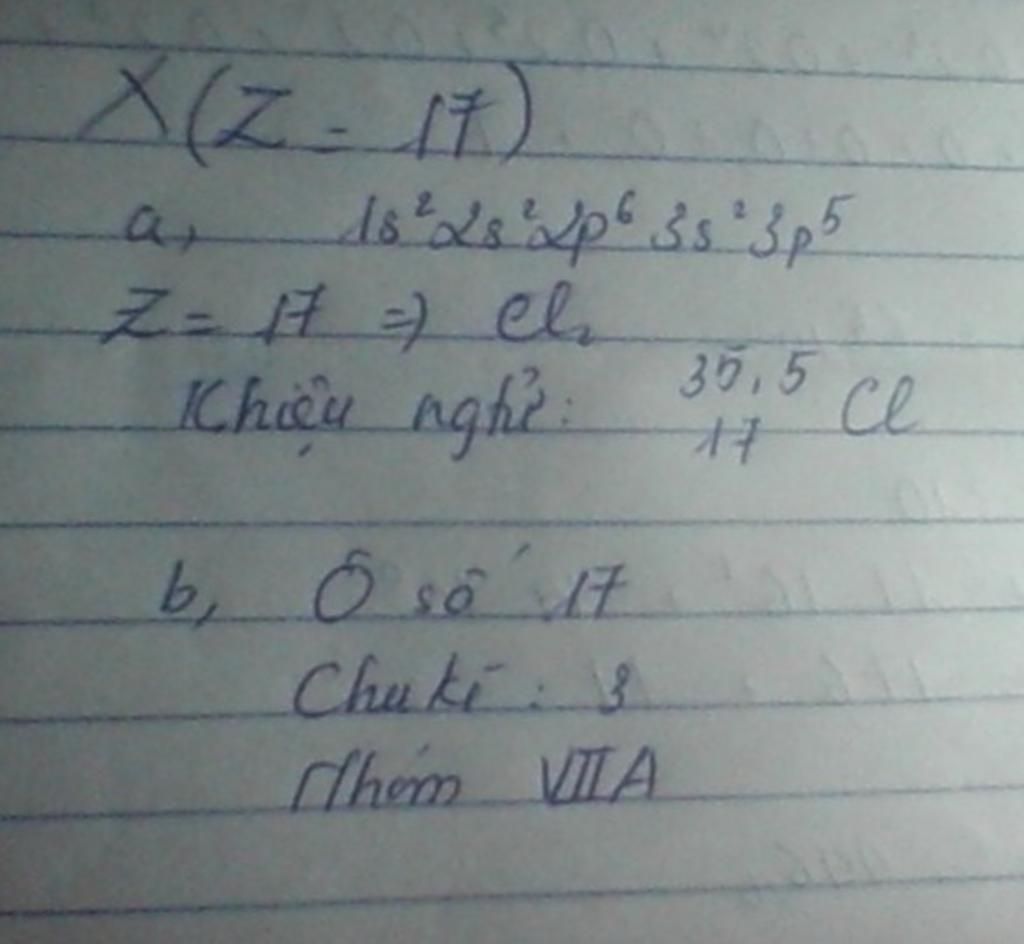 X(Z = 17)
a, 1s²2s²2p⁶3s²3p⁵
Z = 17 => Cl,
Khiệu nghĩ: ³⁵,⁵₁₇Cl
b, Ô số 17
Chu kì : 3
Nhóm VIIA